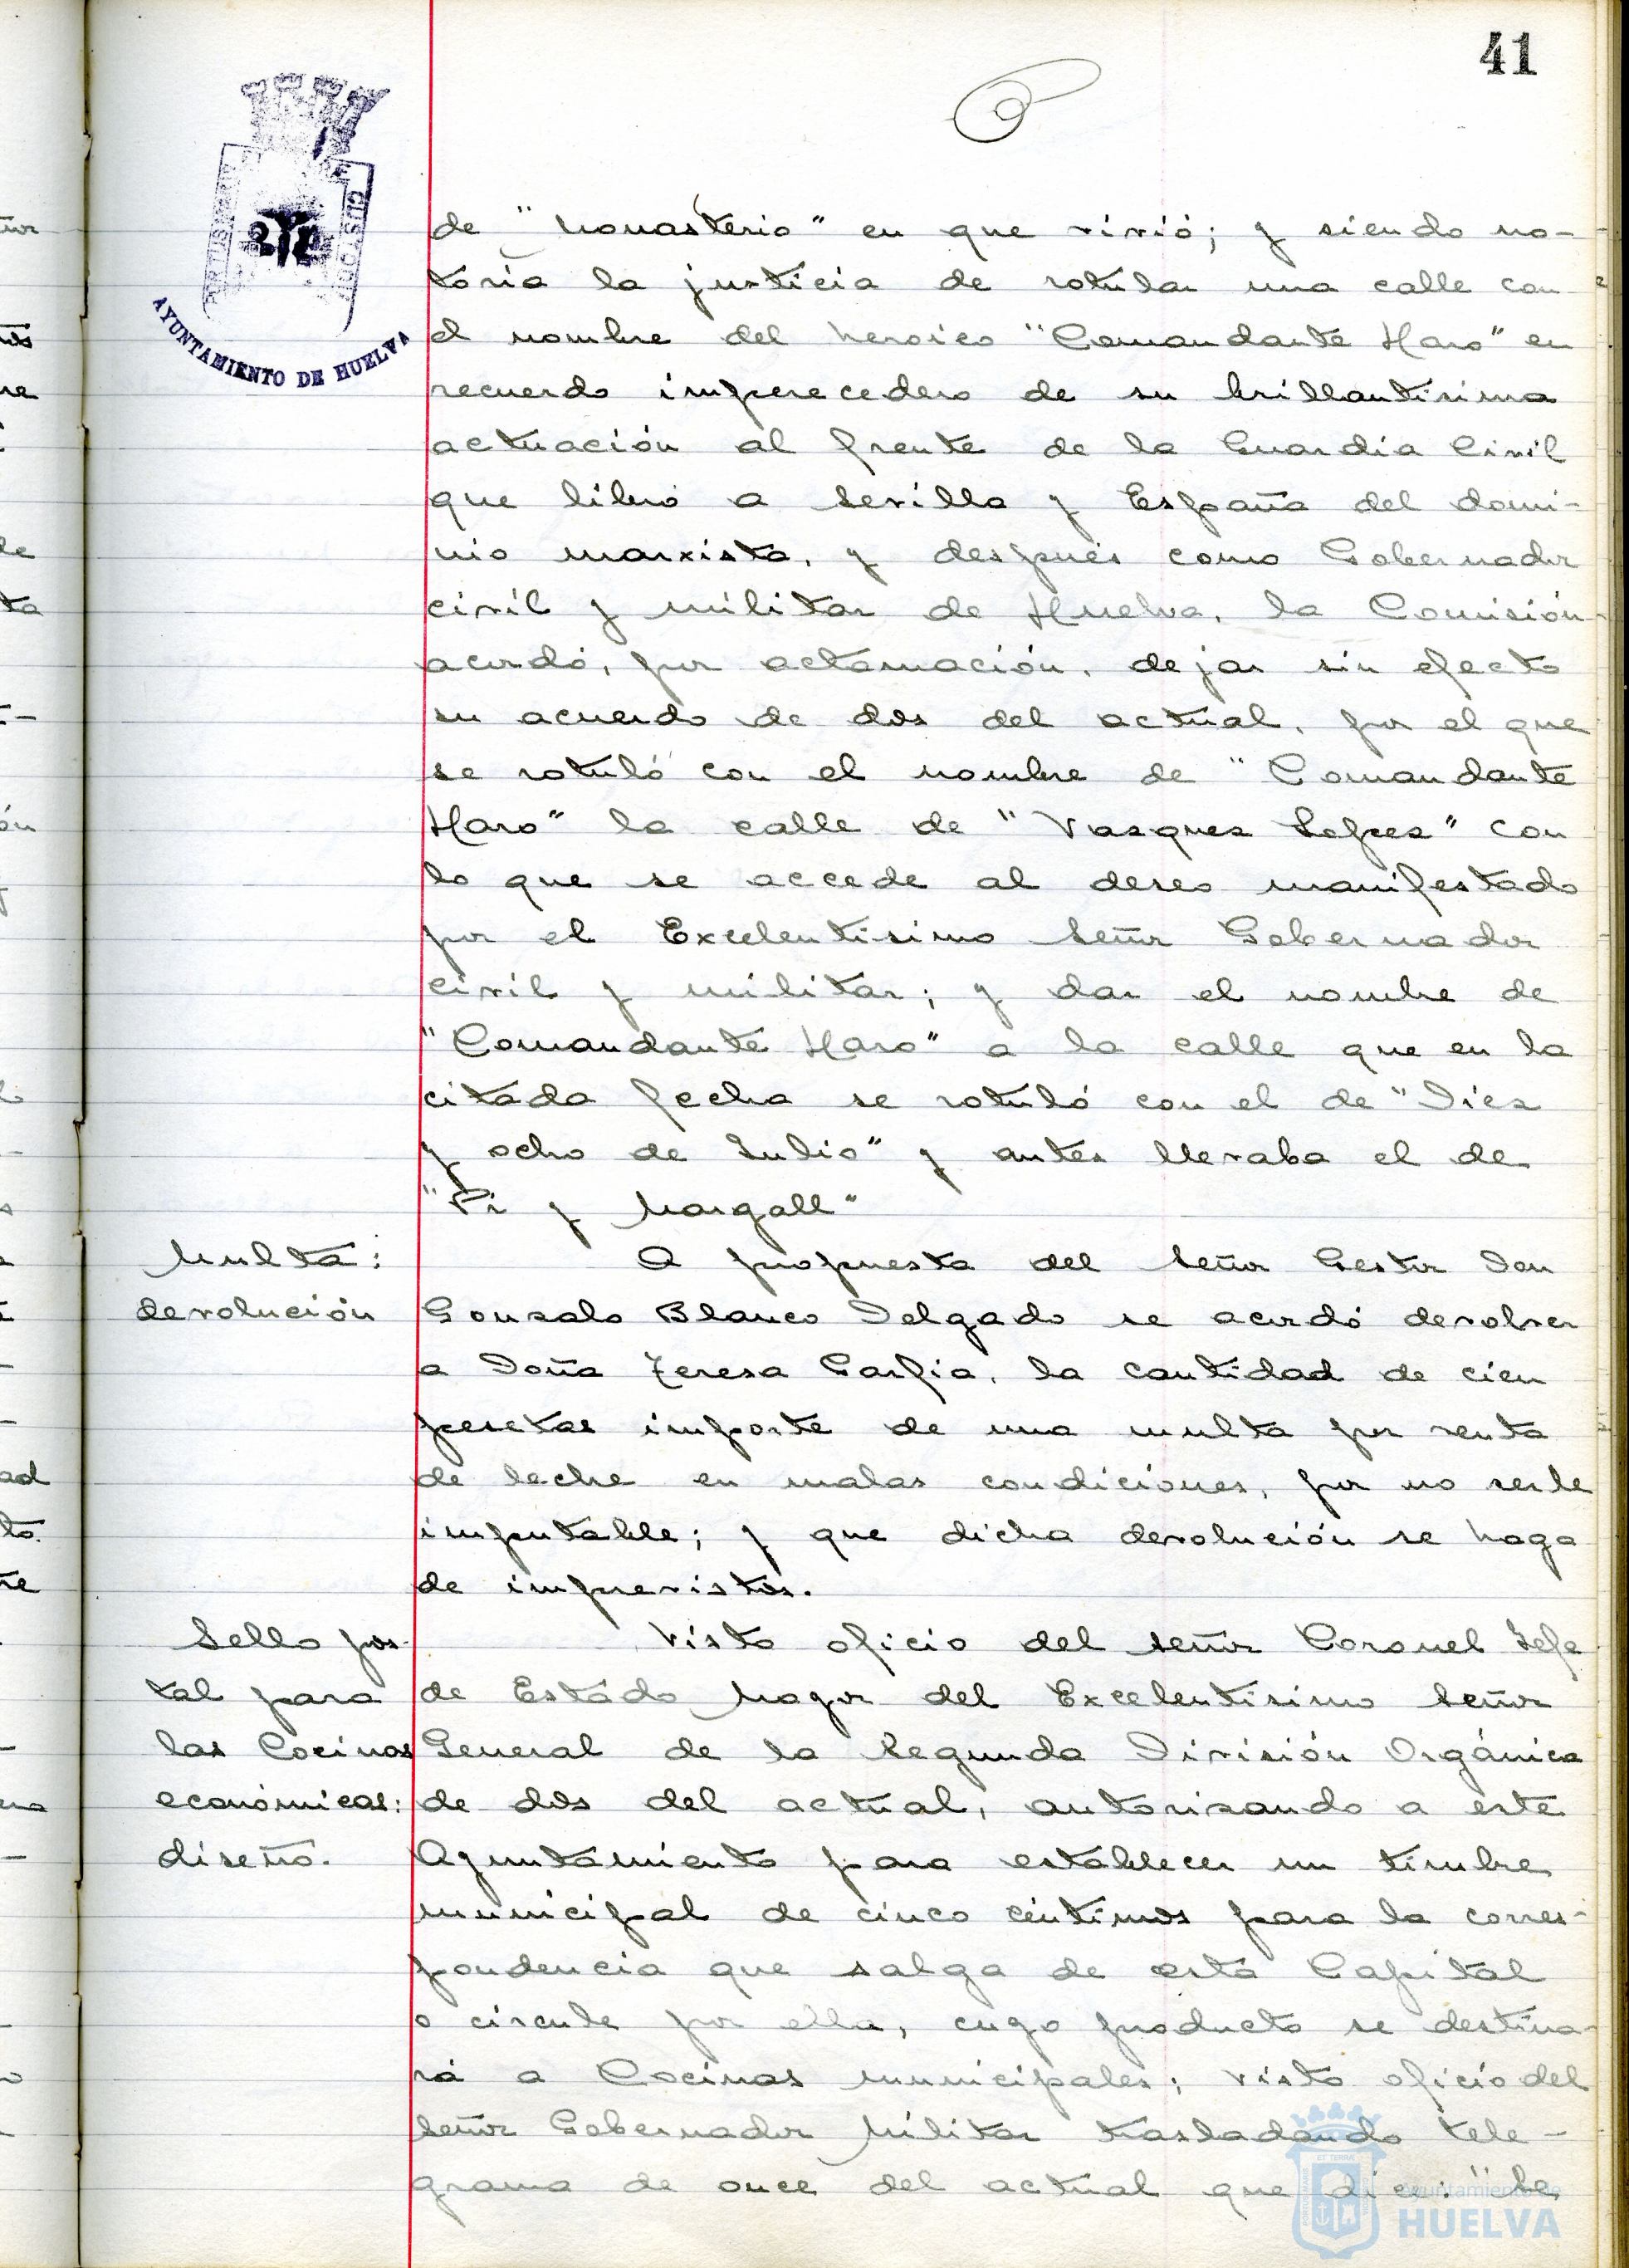 41
AYUNTAMIENTO DE HUELVA
de "Monasterio" en que vivió; y siendo no-
toria la justicia de rotular una calle con
el nombre del heroico "Comandante Haro" en
recuerdo imperecedero de su brillantísima
actuación al frente de la Guardia Civil
que libró a Sevilla y España del domi-
nio marxista, y después como Gobernador
civil y militar de Huelva, la Comisión
acordó, por aclamación, dejar sin efecto
su acuerdo de dos del actual, por el que
se rotuló con el nombre de "Comandante
Haro" la calle de "Vasques Lopes" con
lo que se accede al deseo manifestado
por el Excelentísimo Señor Gobernador
civil y militar; y dar el nombre de
"Comandante Haro" a la calle que en la
citada fecha se rotuló con el de "Diez
y ocho de Julio" y antes llevaba el de
"Pi y Margall"
Multa:
devolución
A propuesta del Señor Gestor Don
Gonzalo Blanco Delgado se acordó devolver
a Doña Teresa Garfia, la cantidad de cien
pesetas importe de una multa por venta
de leche en malas condiciones, por no serle
imputable; y que dicha devolución se haga
de imprevistos.
Sello pos-
tal para
las Cocinas
económicas:
diseño.
Visto oficio del Señor Coronel Jefe
de Estado Mayor del Excelentísimo Señor
General de la Segunda División Orgánica
de dos del actual, autorizando a este
Ayuntamiento para establecer un timbre
municipal de cinco céntimos para la corres-
pondencia que salga de esta Capital
o circule por ella, cuyo producto se destina-
rá a Cocinas municipales; visto oficio del
Señor Gobernador Militar trasladando tele-
grama de once del actual que dice: "Se
Ayuntamiento de
HUELVA